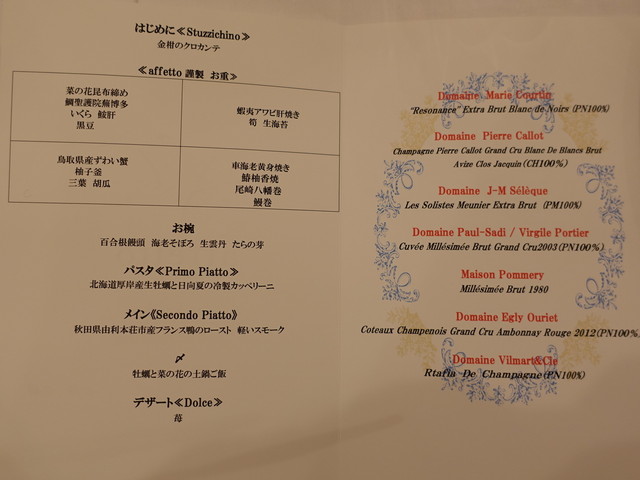 はじめに≪Stuzzichino≫
金柑のクロカンテ
≪affetto謹製 お重≫
菜の花昆布締め
鯛聖護院蕪博多
いくら 鮟肝
黒豆
蝦夷アワビ肝焼き
筍 生海苔
鳥取県産ずわい蟹
柚子釜
三葉 胡瓜
車海老黄身焼き
鰆柚香焼
尾崎八幡巻
鰻巻
お椀
百合根饅頭 海老そぼろ 生雲丹 たらの芽
パスタ≪Primo Piatto≫
北海道厚岸産生牡蠣と日向夏の冷製カッペリーニ
メイン≪Secondo Piatto≫
秋田県由利本荘市産フランス鴨のロースト 軽いスモーク
〆
牡蠣と菜の花の土鍋ご飯
デザート≪Dolce≫
苺
Domaine Marie Courtin
"Resonance" Extra Brut Blanc de Noirs (PN100%)
Domaine Pierre Callot
Champagne Pierre Callot Grand Cru Blanc De Blancs Brut
Avize Clos Jacquin (CH100%)
Domaine J-M Sélèque
Les Solistes Meunier Extra Brut (PM100%)
Domaine Paul-Sadi / Virgile Portier
Cuvée Millésimée Brut Grand Cru2003(PN100%)
Maison Pommery
Millésimée Brut 1980
Domaine Egly Ouriet
Coteaux Champenois Grand Cru Ambonnay Rouge 2012(PN100%)
Domaine Vilmart&Cie
Rtafia De Champagne(PN100%)